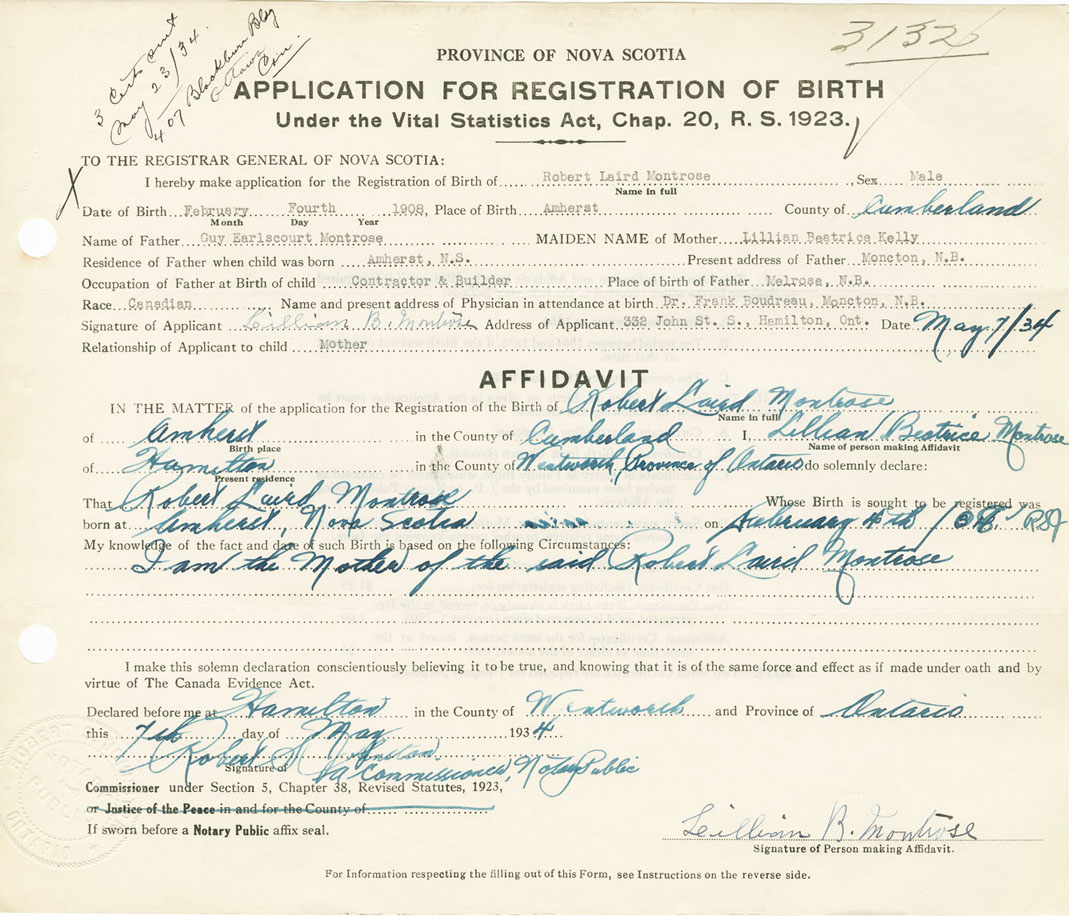 3 Certs out
May 23/34.
407 Blackburn Bldg
Ottawa
Con.
PROVINCE OF NOVA SCOTIA
APPLICATION FOR REGISTRATION OF BIRTH
Under the Vital Statistics Act, Chap. 20, R. S. 1923.
X TO THE REGISTRAR GENERAL OF NOVA SCOTIA:
I hereby make application for the Registration of Birth of Robert Laird Montrose, Sex Male
Name in full
Date of Birth February Fourth 1908, Place of Birth Amherst County of Cumberland
Month Day Year
Name of Father Guy Earlscourt Montrose MAIDEN NAME of Mother Lillian Beatrice Kelly
Residence of Father when child was born Amherst, N.S. Present address of Father Moncton, N.B.
Occupation of Father at Birth of child Contractor & Builder Place of birth of Father Melrose, N.B.
Race Canadian Name and present address of Physician in attendance at birth Dr. Frank Boudreau, Moncton, N.B.
Signature of Applicant Lillian B. Montrose Address of Applicant 332 John St. S., Hamilton, Ont. Date May 7/34
Relationship of Applicant to child Mother
AFFIDAVIT
IN THE MATTER of the application for the Registration of the Birth of Robert Laird Montrose
Name in full
of Amherst in the County of Cumberland I, Lillian Beatrice Montrose
Birth place Name of person making Affidavit
of Hamilton in the County of Wentworth, Province of Ontario do solemnly declare:
Present residence
That Robert Laird Montrose Whose Birth is sought to be registered was
born at Amherst, Nova Scotia on February 4th 1908
My knowledge of the fact and date of such Birth is based on the following Circumstances:
I am the Mother of the said Robert Laird Montrose
I make this solemn declaration conscientiously believing it to be true, and knowing that it is of the same force and effect as if made under oath and by
virtue of The Canada Evidence Act.
Declared before me at Hamilton in the County of Wentworth and Province of Ontario
this 7th day of May 1934.
Robert
Signature of a Commissioner, Notary Public
Commissioner under Section 5, Chapter 38, Revised Statutes, 1923,
or Justice of the Peace in and for the County of
If sworn before a Notary Public affix seal.
Lillian B. Montrose
Signature of Person making Affidavit.
For Information respecting the filling out of this Form, see Instructions on the reverse side.